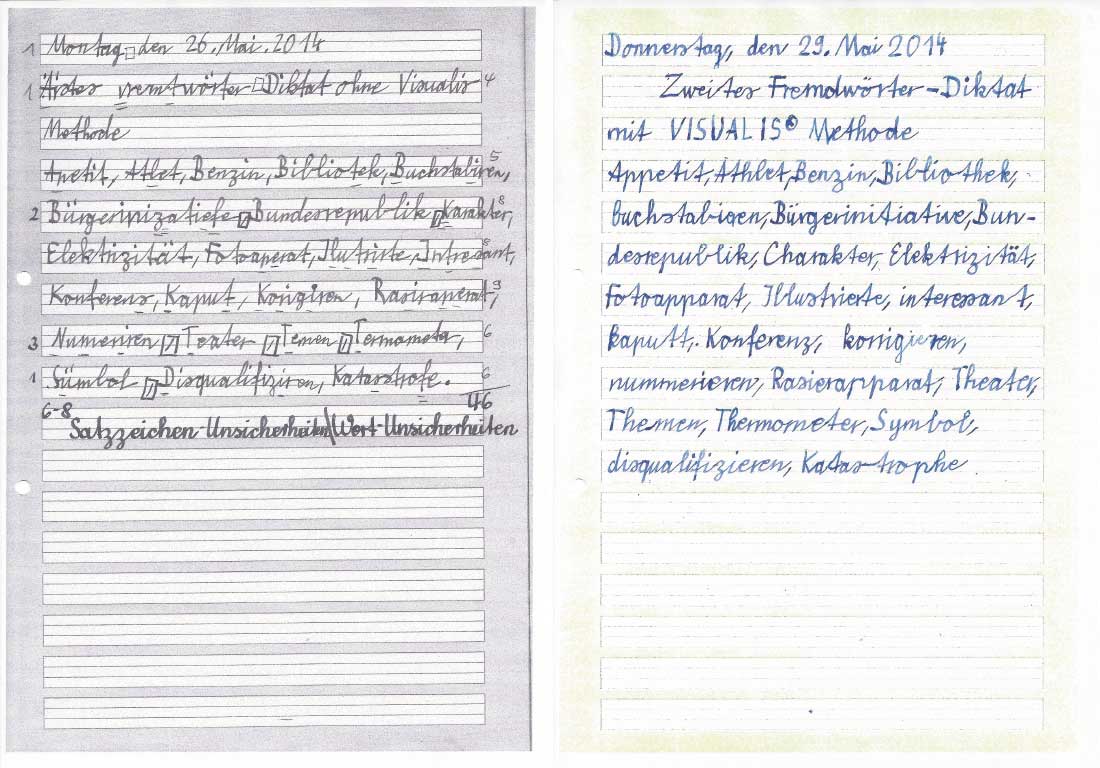 1 Montag□den 26. Mai. 2014
1 Ärstes vremtwörter□Diktat ohne Visualis 4
Methode
Apetit, Athlet, Benzin, Bibliotek, Buchstabiren, 5
2 Bürgerinizatiefe□Bundesrepublik□Karakter, 8
Elektrizität, Fotoaperat, Ilustrirte, Intresant, 8
Konferens, Kaput, Korigiren, Rasiraperat, 9
3 Numeriren□Teater□Temen□Termometer, 6
1 Sümbol□Disqualifiziren, Katastrofe. 6
6-8 46
Satzzeichen-Unsicherheiten\Wort-Unsicherheiten
Donnerstag, den 29. Mai 2014
Zweites Fremdwörter-Diktat
mit VISUALIS® Methode
Appetit, Athlet, Benzin, Bibliothek,
buchstabieren, Bürgerinitiative, Bun-
desrepublik, Charakter, Elektrizität,
Fotoapparat, Illustrierte, interessant,
kaputt, Konferenz, korrigieren,
nummerieren, Rasierapparat, Theater,
Themen, Thermometer, Symbol,
disqualifizieren, Katastrophe.